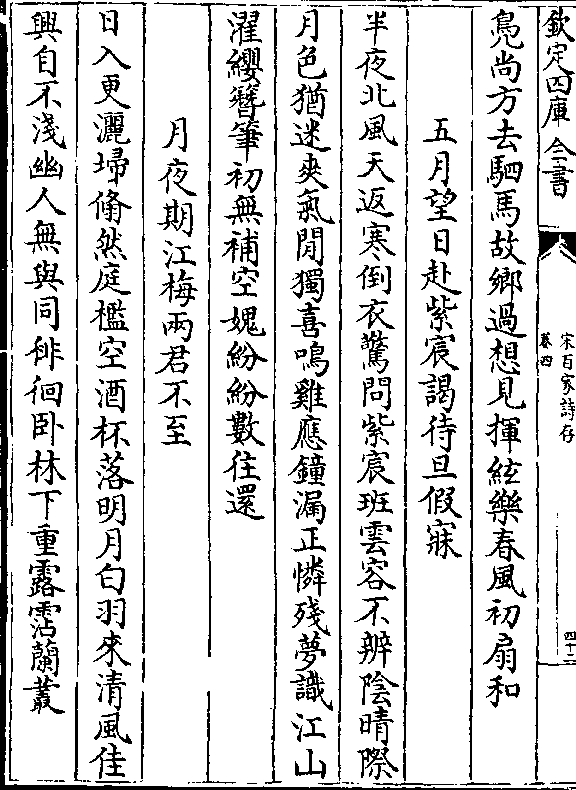 欽定四庫全書
宋百家詩存
卷四
四十二
鳧尚方去駟馬故鄉過想見揮絃樂春風初扇和
五月望日赴紫宸謁待旦假寐
半夜北風天返寒倒衣驚問紫宸班雲容不辨陰晴際
月色猶迷爽氣閒獨喜鳴雞應鐘漏正憐殘夢識江山
濯纓簪筆初無補空媿紛紛數往還
月夜期江梅兩君不至
日入更灑埽翛然庭檻空酒杯落明月白羽來清風佳
興自不淺幽人無與同徘徊臥林下重露霑蘭叢